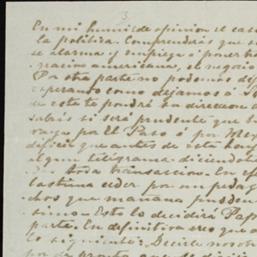 3
En mi humilde opinion el cas
la politica. Comprendrás que s
se alarma y empiega á poner tro
racion americana, el negocio
Por otra parte no podemos dej
esperando como dejamos á
de este te pondrá en direccion
sabrás si será prudente que
vaya por El Paso ó por
dificil que antes de esta
algun telegrama diciendo
transaccion. En
lastima ceder por un pedaz
chos que mañana pueden
simo. Esto lo decidirá Pap
parte. En definitiva creo que
lo siguiente: Decide